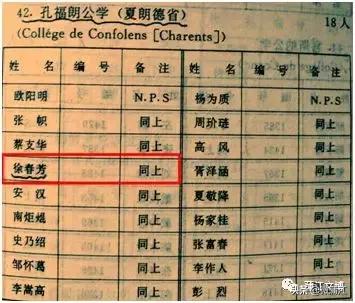 42. 孔福朗公学（夏朗德省） 18人
(Collége de Confolens [Charents])
姓名 编号 备注 姓名 编号 备注
欧阳明 N.P.S 杨为质 N.P.S
张帜 同上 周玠琏 同上
蔡支华 同上 高风 同上
徐春芳 同上 胥洋涵 同上
安汉 同上 夏敬隆 同上
南炬焜 同上 杨家桂 同上
史乃绍 同上 张富春 同上
邹怀葛 同上 李作人 同上
李嵩高 同上 彭烈 同上
蒲江文博